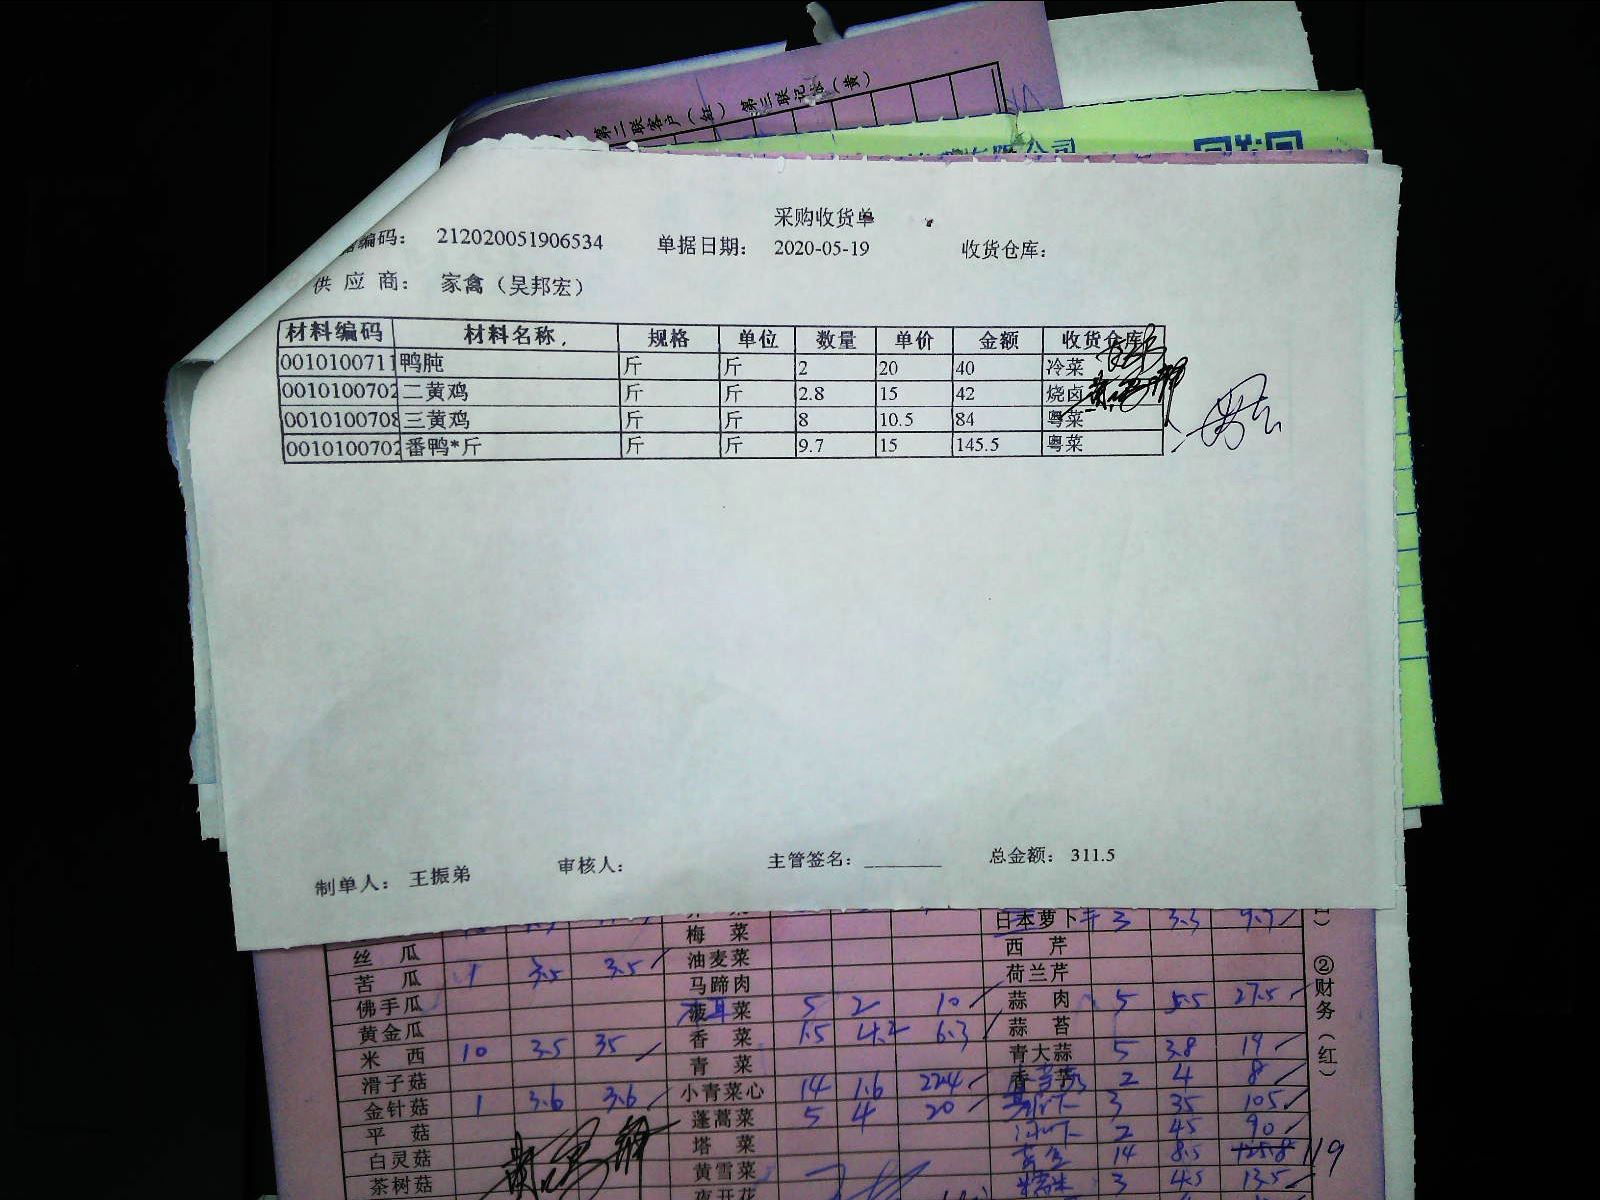 第二联客户（红） 第三联记账（黄）
有限公司
采购收货单
据编码： 212020051906534 单据日期： 2020-05-19 收货仓库：
供应商： 家禽（吴邦宏）
材料编码 材料名称 规格 单位 数量 单价 金额 收货仓库
0010100711 鸭肫 斤 斤 2 20 40 冷菜
0010100702 二黄鸡 斤 斤 2.8 15 42 烧卤
0010100708 三黄鸡 斤 斤 8 10.5 84 粤菜
0010100702 番鸭*斤 斤 斤 9.7 15 145.5 粤菜
制单人： 王振弟 审核人： 主管签名： 总金额： 311.5
日本萝卜 3 3.3 9.9
丝瓜 梅菜 西芹
苦瓜 1 3.5 3.5 油麦菜 荷兰芹
佛手瓜 马蹄肉 蒜肉 5 5.5 27.5
黄金瓜 菜 5 2 10 蒜苔
米西 10 3.5 35 香菜 1.5 4.2 6.3 青大蒜 5 3.8 19
滑子菇 青菜 2 4 8
金针菇 1 3.6 3.6 小青菜心 14 1.6 22.4 3 35 105
平菇 蓬蒿菜 5 4 20 2 45 90
白灵菇 塔菜 14 8.5 119
茶树菇 黄雪菜 3 4.5 13.5
夜开花
②财务（红）